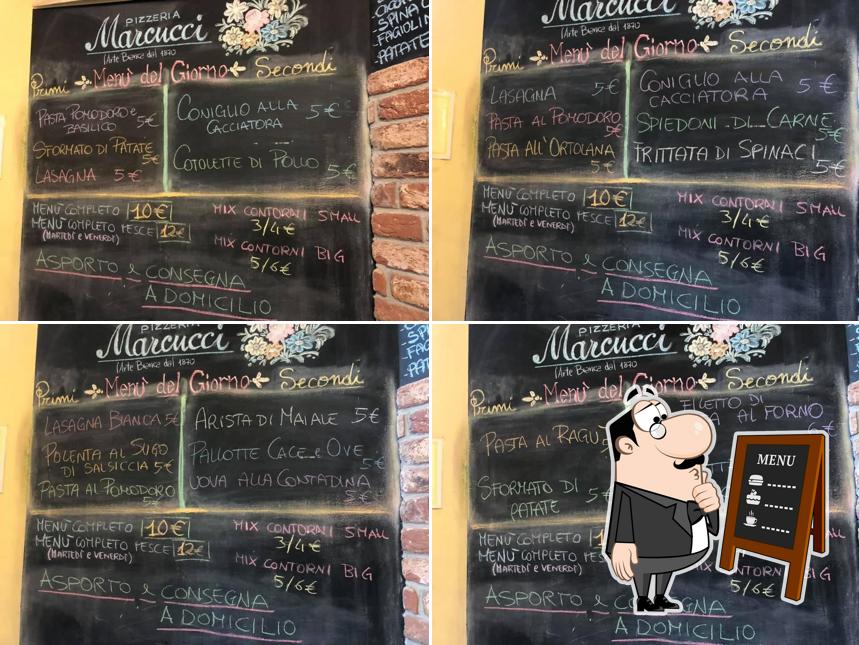 PIZZERIA
Marcucci
(Arte Bianca dal 1870
Primi Menù del Giorno Secondi
PASTA POMODORO e
BASILICO 5€
SFORMATO DI PATATE
5€
LASAGNA 5€
CONIGLIO ALLA 5€
CACCIATORA
COTOLETTE DI POLLO 5€
MENU' COMPLETO 10€
MENU' COMPLETO PESCE 12€
(MARTEDÌ e VENERDÌ)
MIX CONTORNI SMALL
3/4€
MIX CONTORNI BIG
5/6€
ASPORTO e CONSEGNA
A DOMICILIO
-SPINAC
-FAGIOLIN
-PATATE
Marcucci
(Arte Bianca dal 1870
Primi Menù del Giorno Secondi
LASAGNA 5€
PASTA AL POMODORO
5€
PASTA ALL'ORTOLANA
5€
CONIGLIO ALLA 5€
CACCIATORA
SPIEDONI DI CARNE
5€
FRITTATA DI SPINACI
5€
MENU' COMPLETO 10€
MENU' COMPLETO PESCE 12€
(MARTEDÌ e VENERDÌ)
MIX CONTORNI SMALL
3/4€
MIX CONTORNI BIG
5/6€
ASPORTO e CONSEGNA
A DOMICILIO
PIZZERIA
Marcucci
(Arte Bianca dal 1870
Primi Menù del Giorno Secondi
LASAGNA BIANCA 5€
POLENTA AL SUGO
DI SALSICCIA 5€
PASTA AL POMODORO
5€
ARISTA DI MAIALE 5€
PALLOTTE CACE e OVE
5€
UOVA ALLA CONTADINA
5€
MENU' COMPLETO 10€
MENU' COMPLETO PESCE 12€
(MARTEDÌ e VENERDÌ)
MIX CONTORNI SMALL
3/4€
MIX CONTORNI BIG
5/6€
ASPORTO e CONSEGNA
A DOMICILIO
PIZZERIA
Marcucci
(Arte Bianca dal 1870
Primi Menù del Giorno Secondi
PASTA AL RAGU'
SFORMATO DI 5
PATATE
FILETTO DI
AL FORNO
MENU' COMPLETO
MENU' COMPLETO PESC
(MARTEDÌ e VENERDÌ)
BIG
5/6€
ASPORTO e CONSEGNA
A DOMICILIO
MENU